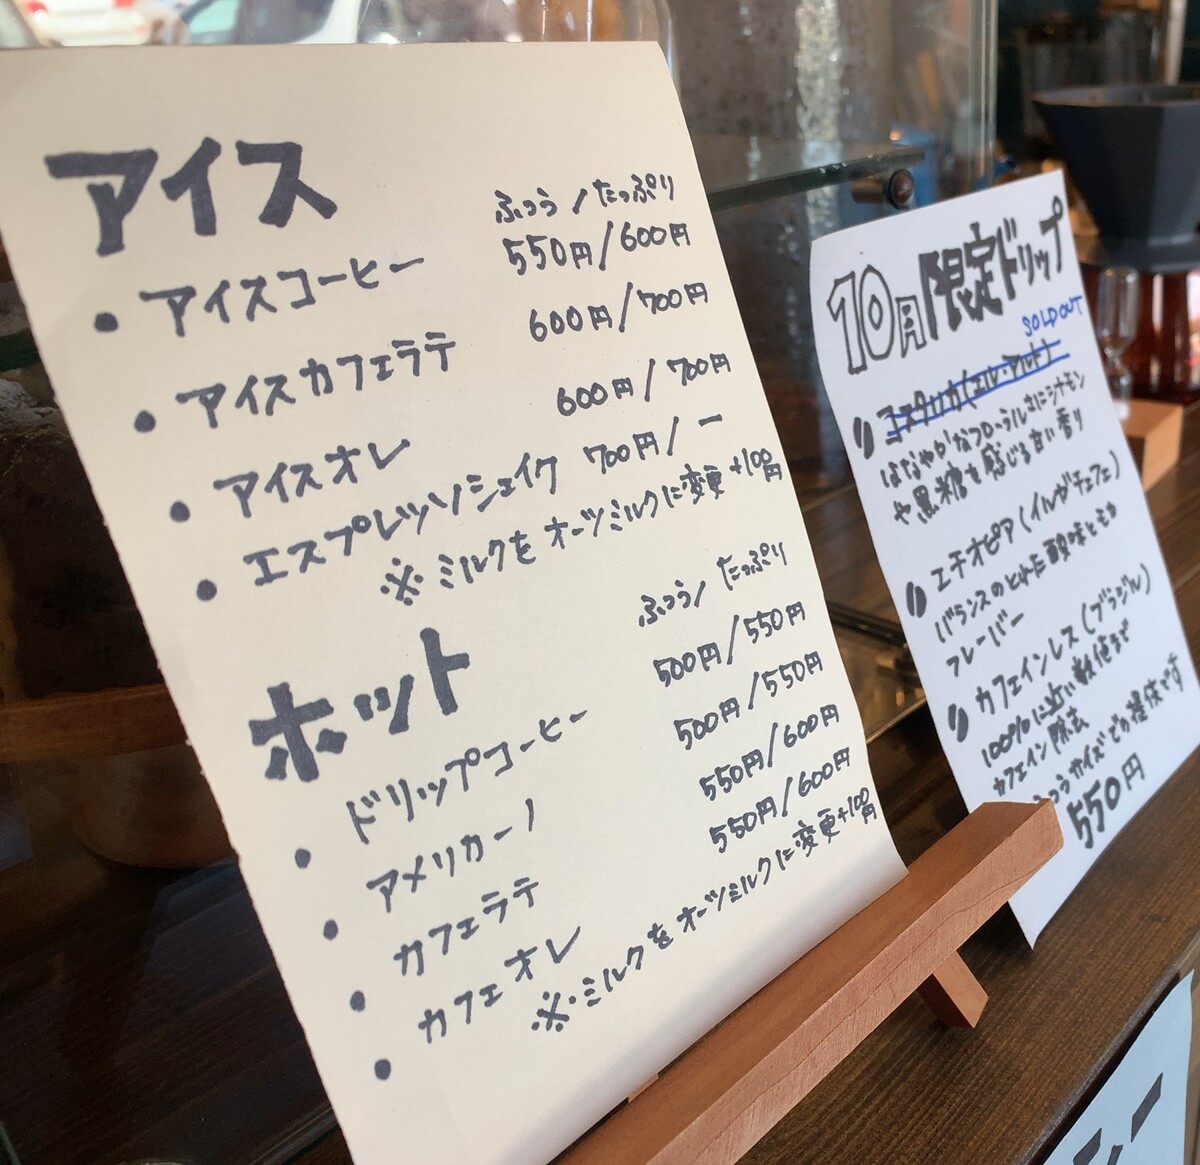 アイス
ふつう/たっぷり
・アイスコーヒー 550円/600円
・アイスカフェラテ 600円/700円
・アイスオレ 600円/700円
・エスプレッソシェイク 700円/ー
※ミルクをオーツミルクに変更+100円
ホット
ふつう/たっぷり
・ドリップコーヒー 500円/550円
・アメリカーノ 500円/550円
・カフェラテ 550円/600円
・カフェオレ 550円/600円
※ミルクをオーツミルクに変更+100円
10月限定ドリップ
SOLD OUT
コスタリカ(エル・アルト)
はなやかなフローラルさにシナモン
や黒糖も感じる甘い香り
エチオピア(イルガチェフェ)
バランスのとれた酸味と
フレーバー
カフェインレス(ブラジル)
100%に近い数値まで
カフェイン除去
ふつうサイズでの提供です
550円